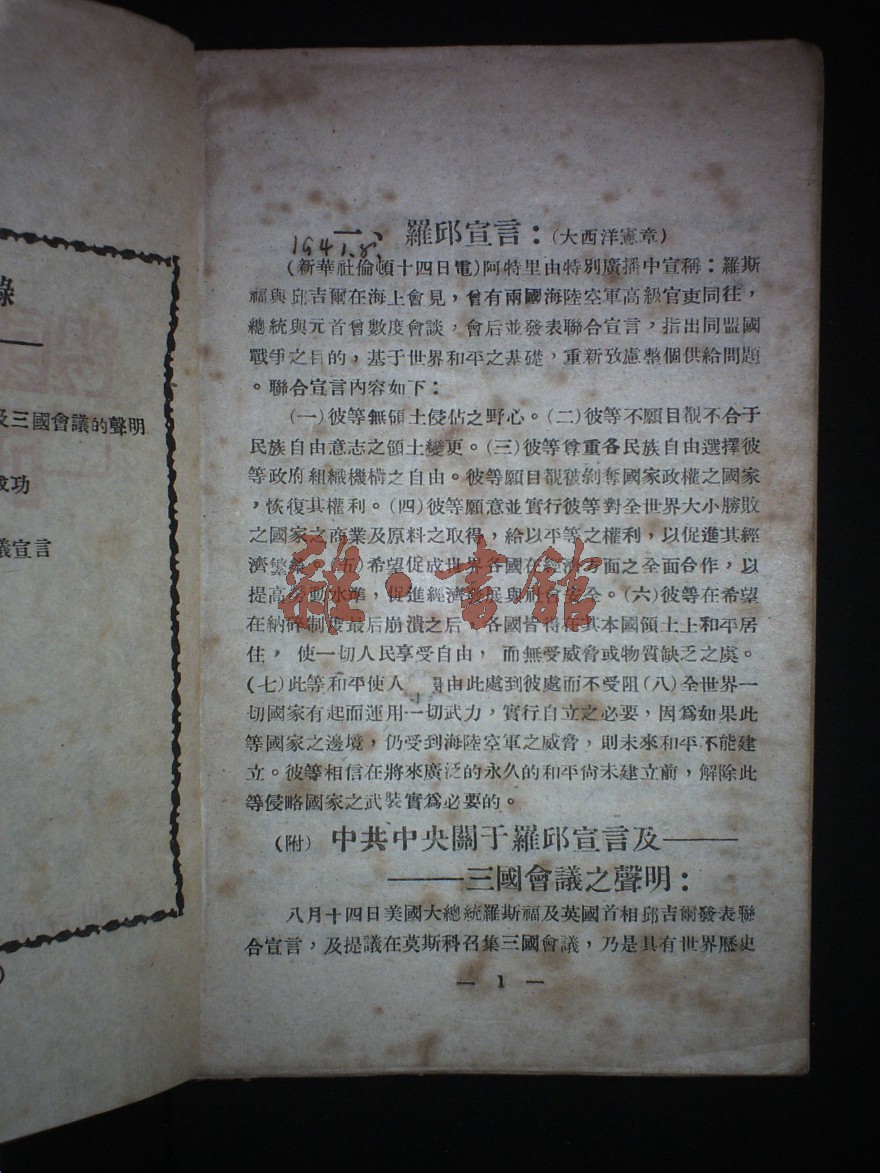 錄
及三國會議的聲明
成功
議宣言
一、羅邱宣言：(大西洋憲章)
1941.8.
(新華社倫頓十四日電)阿特里由特別廣播中宣稱：羅斯
福與邱吉爾在海上會見，曾有兩國海陸空軍高級官吏同往，
總統與元首曾數度會談，會后並發表聯合宣言，指出同盟國
戰爭之目的，基于世界和平之基礎，重新攷慮整個供給問題
。聯合宣言內容如下：
(一)彼等無領土侵佔之野心。(二)彼等不願目覩不合于
民族自由意志之領土變更。(三)彼等尊重各民族自由選擇彼
等政府組織機構之自由。彼等願目覩被剝奪國家政權之國家
，恢復其權利。(四)彼等願意並實行彼等對全世界大小勝敗
之國家之商業及原料之取得，給以平等之權利，以促進其經
濟繁榮。(五)希望促成世界各國在經濟方面之全面合作，以
提高勞動水準，促進經濟發展與社會安全。(六)彼等在希望
在納粹制度最后崩潰之后，各國皆得在其本國領土上和平居
住，使一切人民享受自由，而無受威脅或物質缺乏之虞。
(七)此等和平使人 由此處到彼處而不受阻(八)全世界一
切國家有起而運用一切武力，實行自立之必要，因爲如果此
等國家之邊境，仍受到海陸空軍之威脅，則未來和平不能建
立。彼等相信在將來廣泛的永久的和平尙未建立前，解除此
等侵略國家之武裝實爲必要的。
(附) 中共中央關于羅邱宣言及——
——三國會議之聲明：
八月十四日美國大總統羅斯福及英國首相邱吉爾發表聯
合宣言，及提議在莫斯科召集三國會議，乃是具有世界歷史
— 1 —
雜·書館